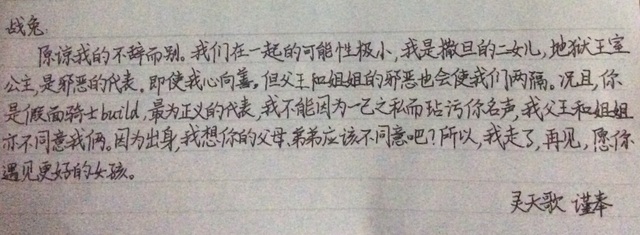 战兔:
原谅我的不辞而别。我们在一起的可能性极小,我是撒旦的二女儿,地狱王室
公主,是邪恶的代表,即使我心向善。但父王和姐姐的邪恶也会使我们两隔。况且,你
是假面骑士build,最为正义的代表,我不能因为一己之私而玷污你名声,我父王和姐姐
亦不同意我俩。因为出身,我想你的父母、弟弟应该不同意吧?所以,我走了,再见,愿你
遇见更好的女孩。
灵天歌 谨奉